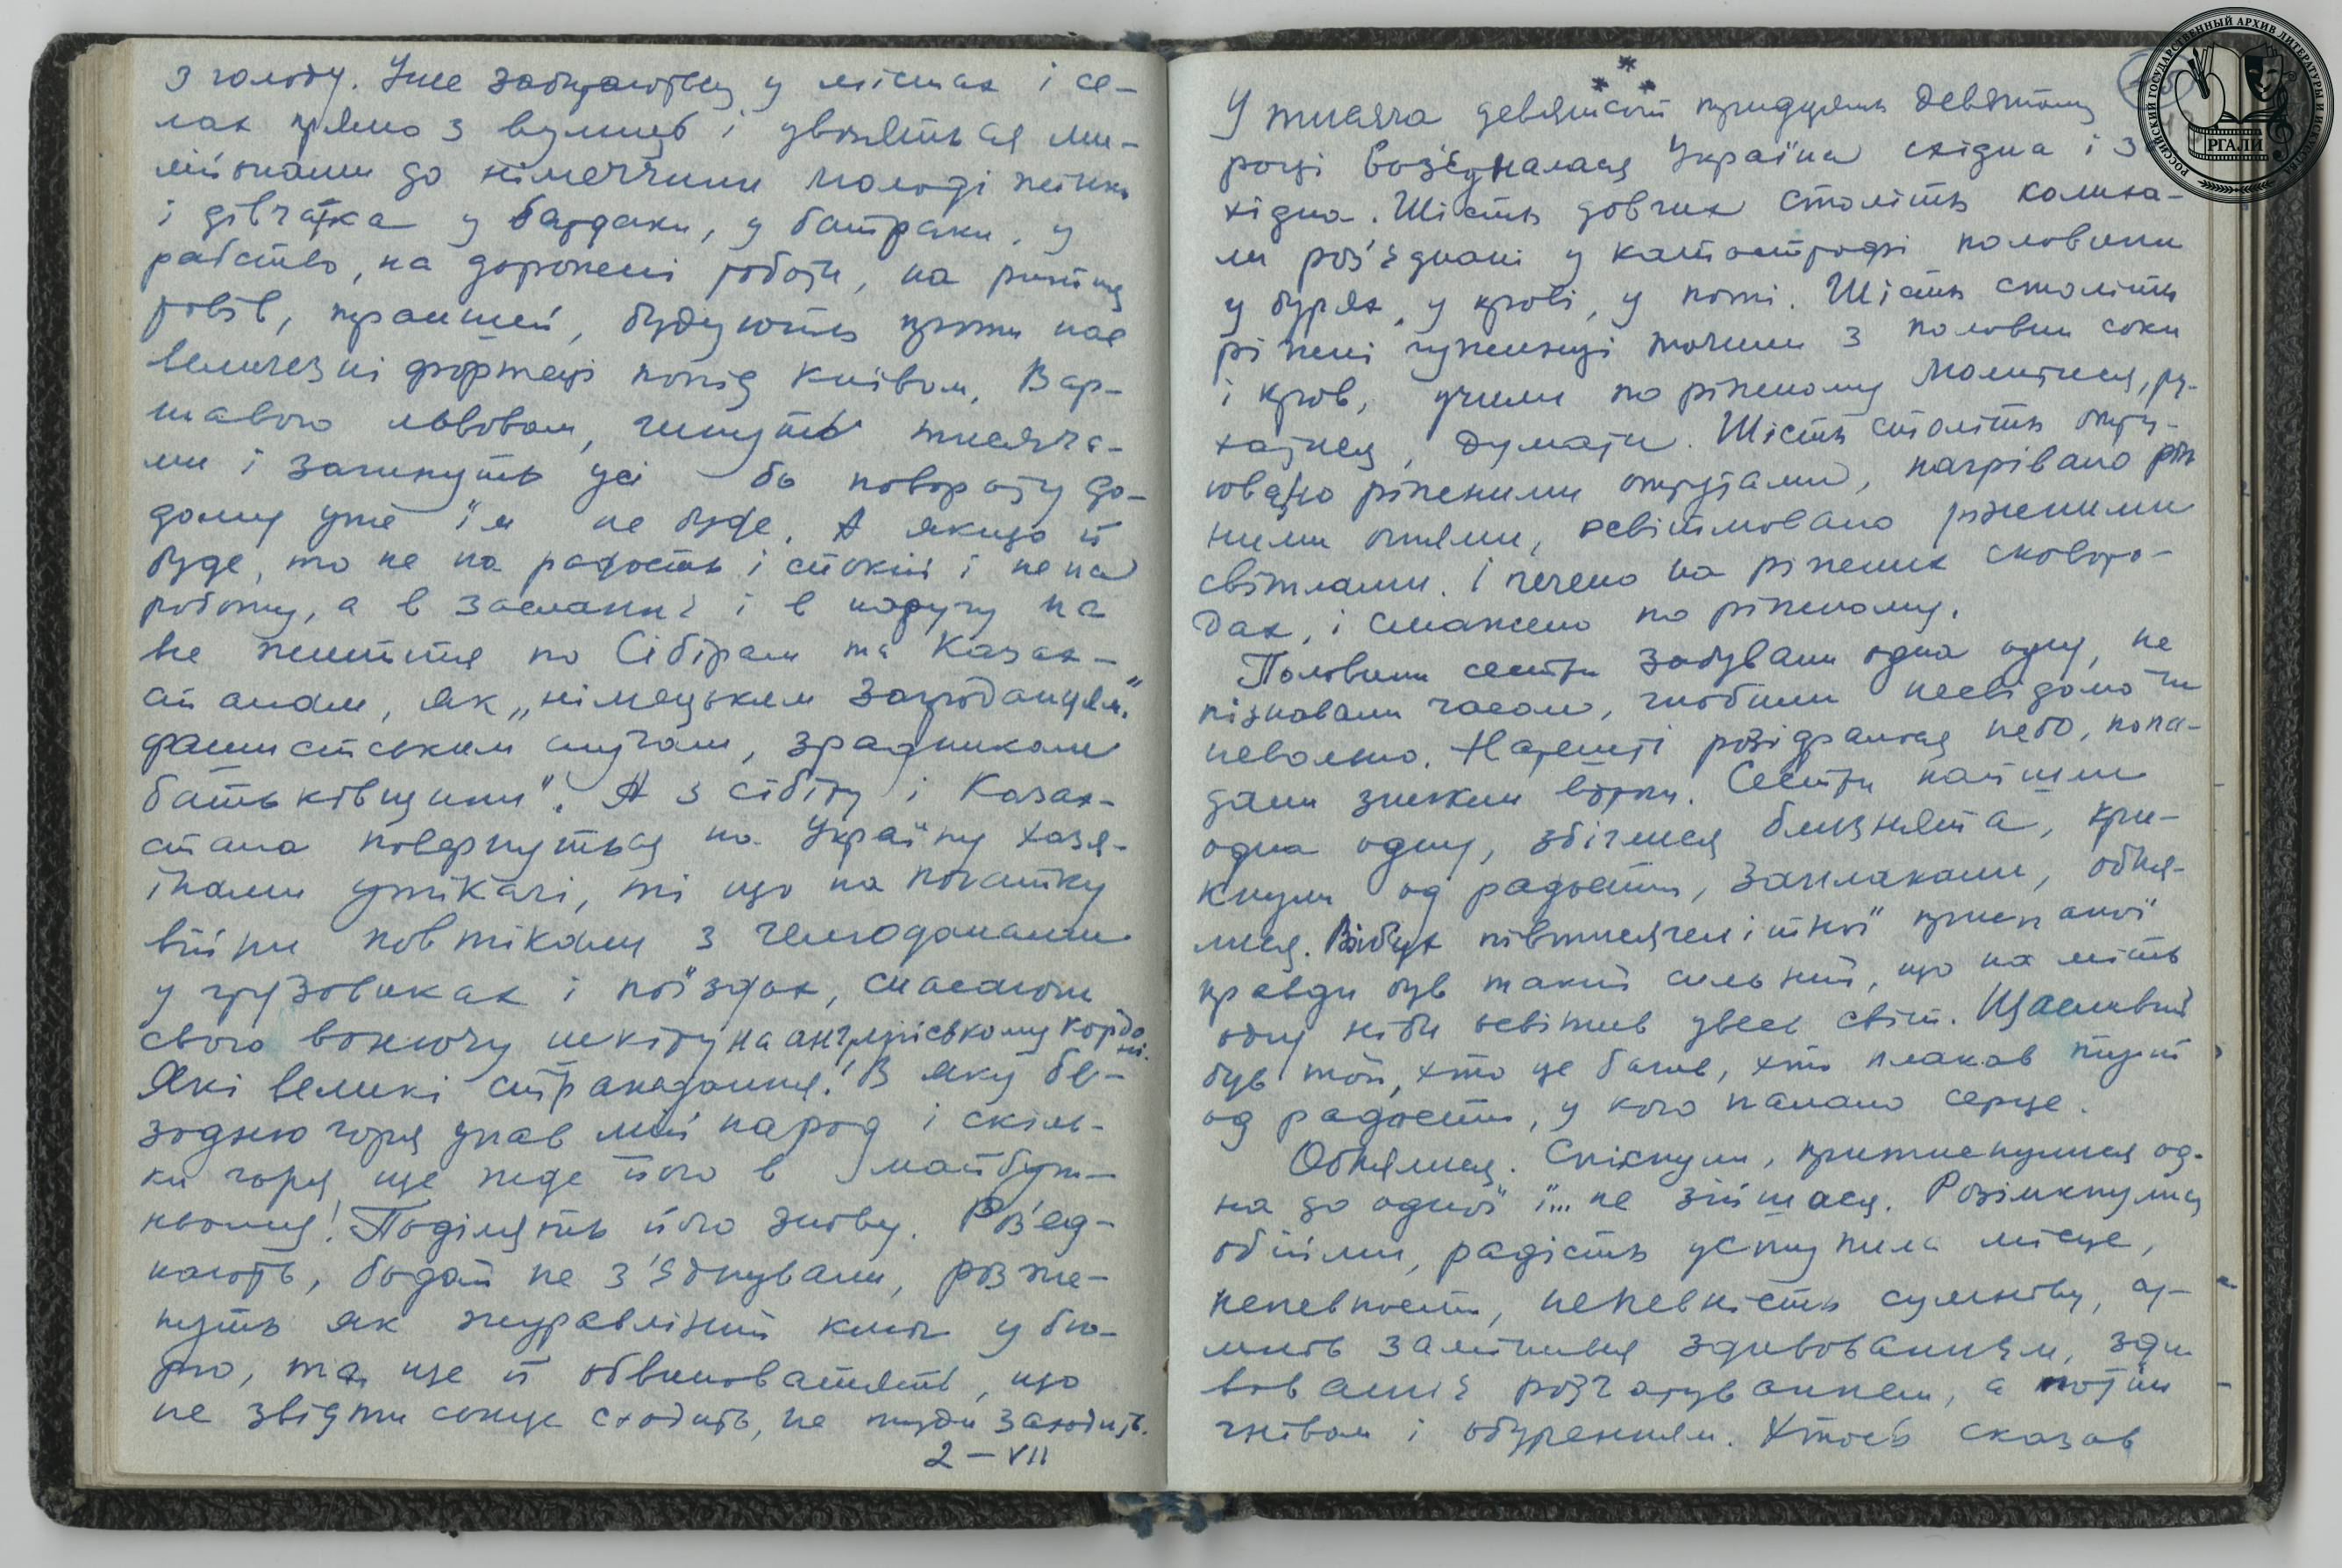 з голоду. Уже забираються у містах і се-
лах прямо з вулиць і увозяться мі-
ліонами до німеччини молоді жінки
і дівчатка у бардаки, у батраки, у
рабство, на дорожні роботи, на риття
ровів, траншей, будують проти нас
величезні фортеці попід Києвом, Вар-
шавою Львовом, гинуть тисяча-
ми і загинуть усі бо повороту до-
дому уже їм не буде. А якщо й
буде, то не на радость і спокій і не на
роботу, а в заслання і в наругу на
все життя по Сібірам та Казах-
станам, як „німецьким запроданцям"
фашистським слугам, зрадникам
батьківщини". А з сібіру і Казах-
стана повернуться на Україну хазя-
їнами утікачі, ті що на початку
війни повтікали з чемоданами
у грузовиках і поїздах, спасаючи
свою вонючу шкіру на англійському кордо
ні.
Які великі страждання! В яку бе-
зодню горя упав мій народ і скіль-
ки горя ще жде його в майбут-
ньому! Поділять його знову. Роз'єд-
нають, бодай не з'єднували, розже-
нуть як журавлиний ключ у бу-
рю, та ще й обвинуватять, що
не звідти сонце сходить, не туди заходить.
2 – VII
* * *
У тисяча девятсот тридцять девятому
році воз'єдналася Україна східна і за
хідна. Шість довгих століть колиха-
ли роз'єднані у катастрофі половини
у бурях, у крові, у поті. Шість століть
ріжні чуженці точили з половин соки
і кров, учили по ріжному молитися, ру-
хатися, думати. Шість століть отру-
ювано ріжними отрутами, нагрівано ріж
ними огнями, освітлювано ріжними
світлами. І печено на ріжних сковоро-
дах, і смажено по ріжному.
Половини сестри забували одна одну, не
пізнавали часом, гнобили несвідомо чи
невольно. Нарешті розідралося небо, попа-
дали зникли вітри. Сестри найшли
одна одну, збіглися близнята, кри-
кнули од радости, заплакали, обня-
лися. Вибух півтисячелітньої приспаної
правди був такий сильний, що на мить
одну ніби освітив увесь світ. Щасливий
був той, хто це бачив, хто плакав тоді
од радости, у кого палало серце.
Обнялися. Спіхнули, притиснулися од-
на до одної і... не зійшлися. Розімкнулись
обійми, радість уступила місце,
непевности, непевність сумніву, су-
мнів замінився здивованням, зди
вовання розчаруванням, а потім
гнівом і обуренням. Хтось сказав
РОССИЙСКИЙ ГОСУДАРСТВЕННЫЙ АРХИВ ЛИТЕРАТУРЫ И ИСКУССТВА
РГАЛИ